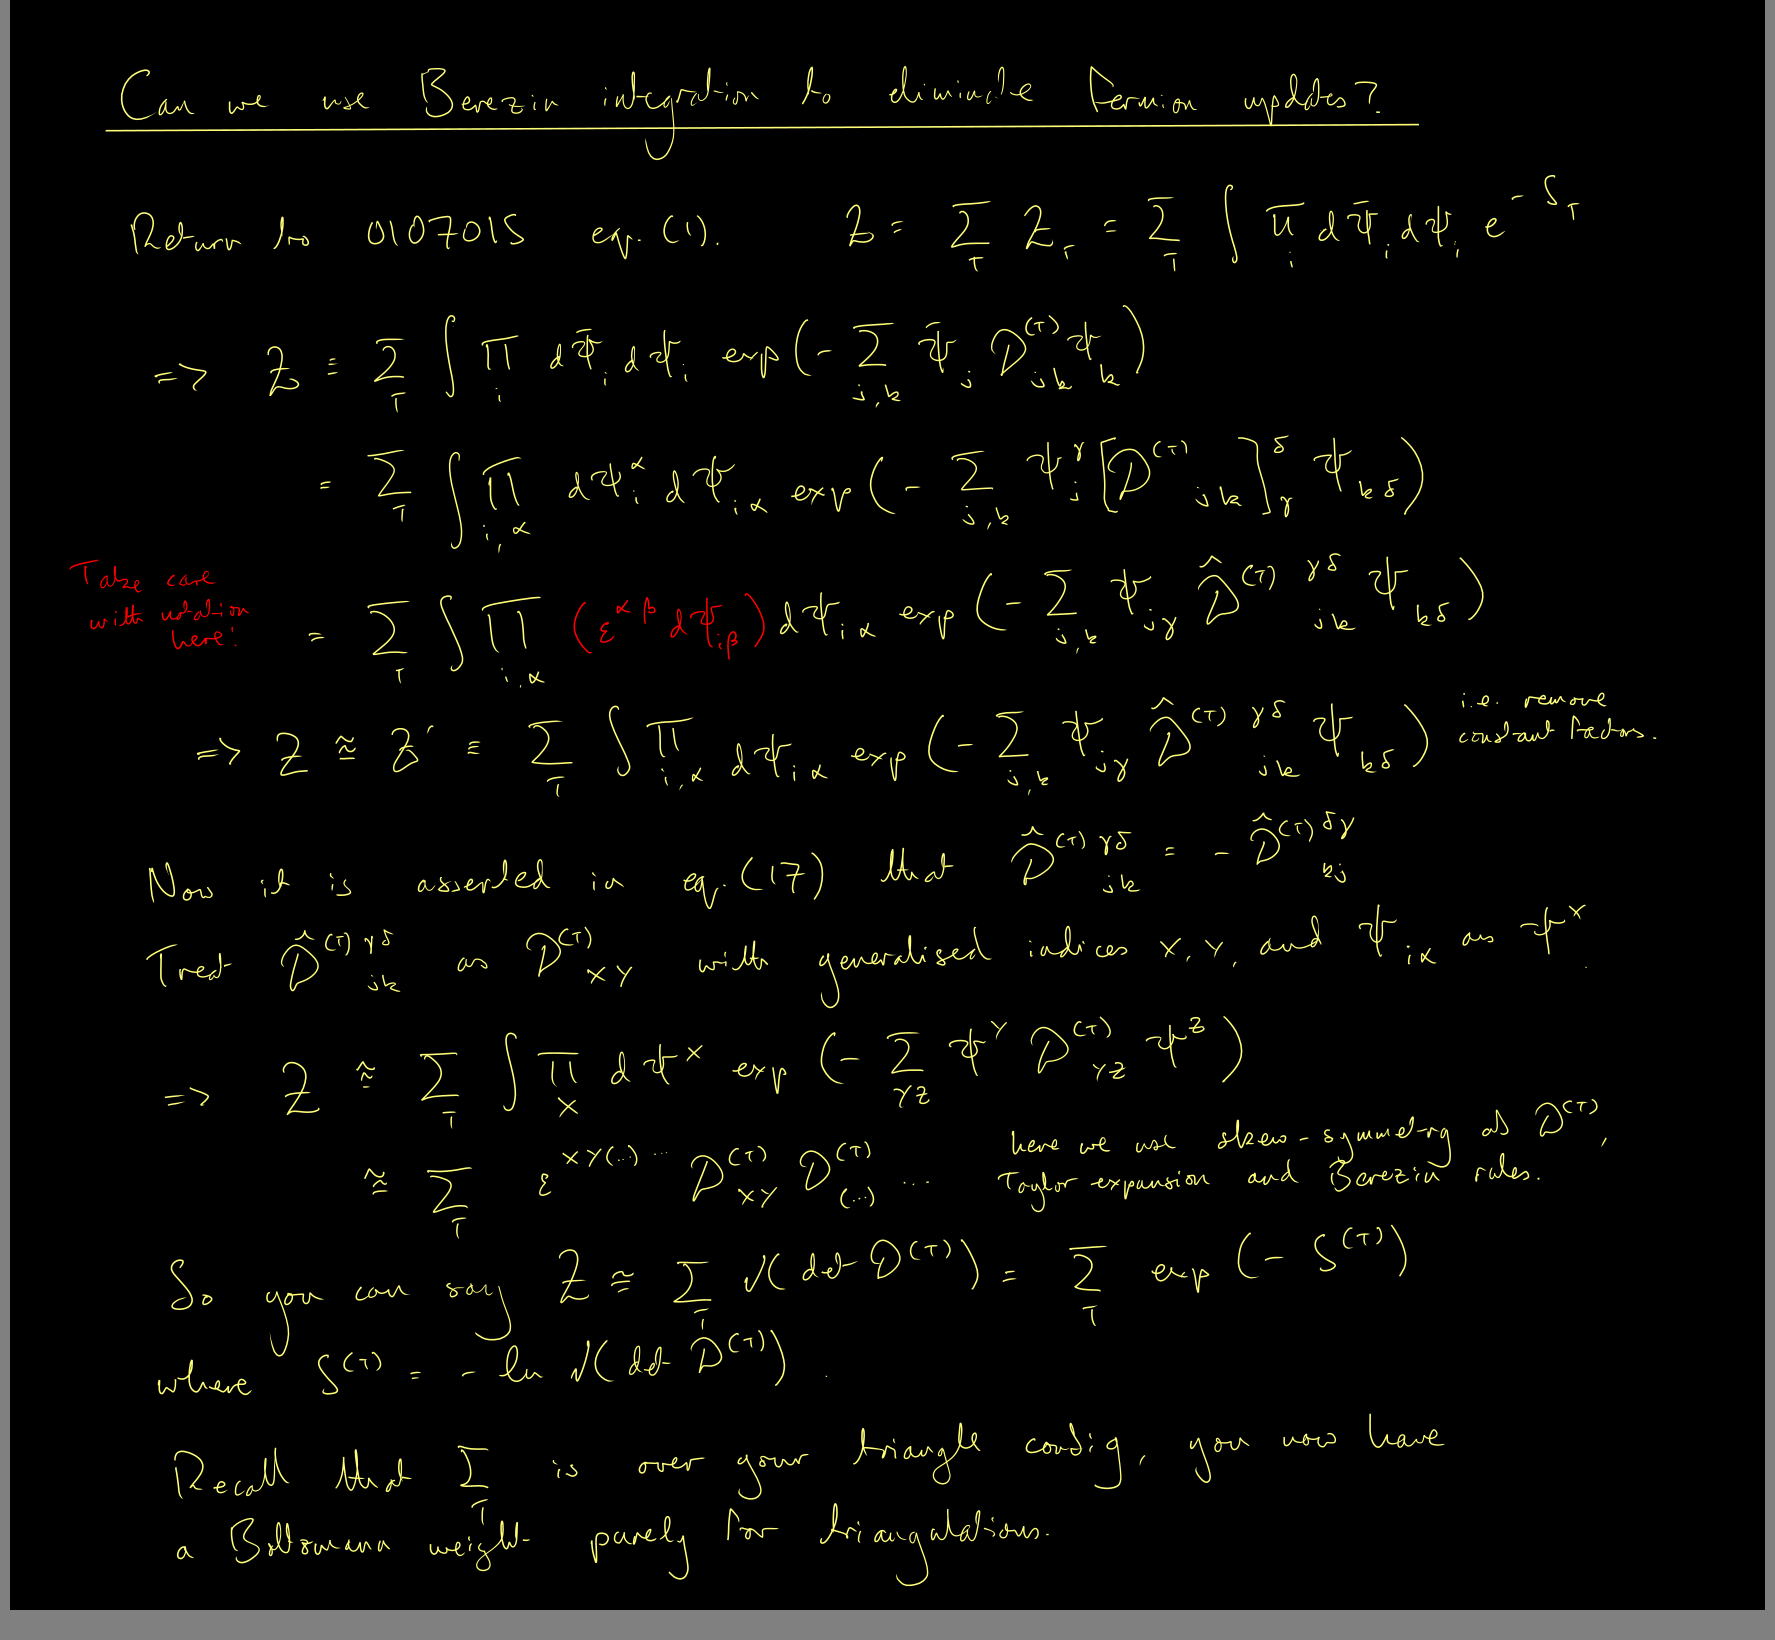 Can we use Berezin integration to eliminate Fermion updates?
Return to 0107015 eq. (1). Z = Σ_T Z_T = Σ_T ∫ Π_i dψ̄_i dψ_i e^{-S_T}
=> Z ≡ Σ_T ∫ Π_i dψ̄_i dψ_i exp(- Σ_{j,k} ψ̄_j D^{(T)}_{jk} ψ_k)
= Σ_T ∫ Π_{i,α} dψ_i^α dψ_{iα} exp(- Σ_{j,k} ψ_j^γ [D^{(T)}_{jk}]_γ^δ ψ_{kδ})
Take care
with notation
here!
= Σ_T ∫ Π_{i,α} (ε^{αβ} dψ_{iβ}) dψ_{iα} exp(- Σ_{j,k} ψ_{jγ} D̂^{(T)γδ}_{jk} ψ_{kδ})
=> Z ≅ Z' ≡ Σ_T ∫ Π_{i,α} dψ_{iα} exp(- Σ_{j,k} ψ_{jγ} D̂^{(T)γδ}_{jk} ψ_{kδ})
i.e. remove
constant factors.
Now it is asserted in eq. (17) that D̂^{(T)γδ}_{jk} = - D̂^{(T)δγ}_{kj}
Treat D̂^{(T)γδ}_{jk} as D^{(T)}_{XY} with generalised indices X, Y, and ψ_{iα} as ψ^X.
=> Z ≅ Σ_T ∫ Π_X dψ^X exp(- Σ_{YZ} ψ^Y D^{(T)}_{YZ} ψ^Z)
≅ Σ_T ε^{XY(...)...} D^{(T)}_{XY} D^{(T)}_{(...)} ...
here we use skew-symmetry of D^{(T)},
Taylor expansion and Berezin rules.
So you can say Z ≅ Σ_T √(det D^{(T)}) = Σ_T exp(- S^{(T)})
where S^{(T)} = - ln √(det D^{(T)}).
Recall that Σ_T is over your triangle config, you now have
a Boltzmann weight purely for triangulations.